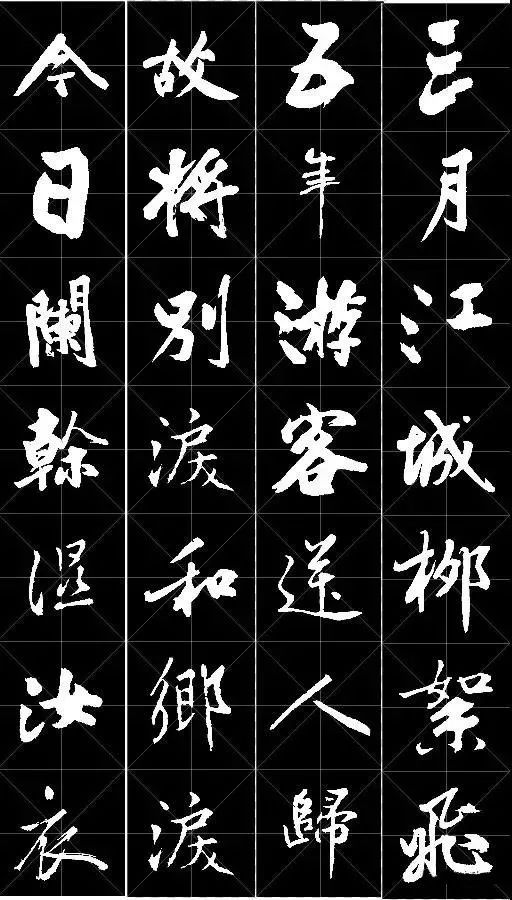 三月江城柳絮飛
五年游客送人歸
故将別淚和鄉淚
今日闌榦湿汝衣